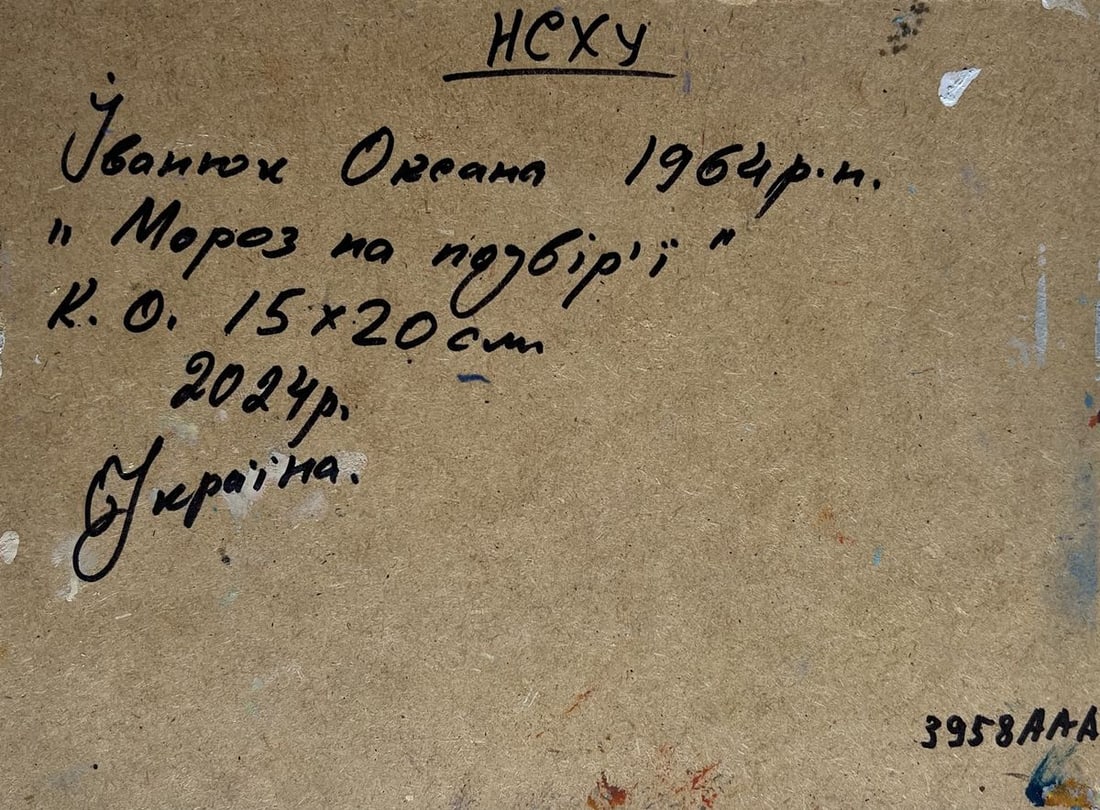 НСХУ
Іванюк Оксана 1964р.н.
" Мороз на подвір'ї "
К.О. 15х20см
2024р.
Україна.
3958ААА